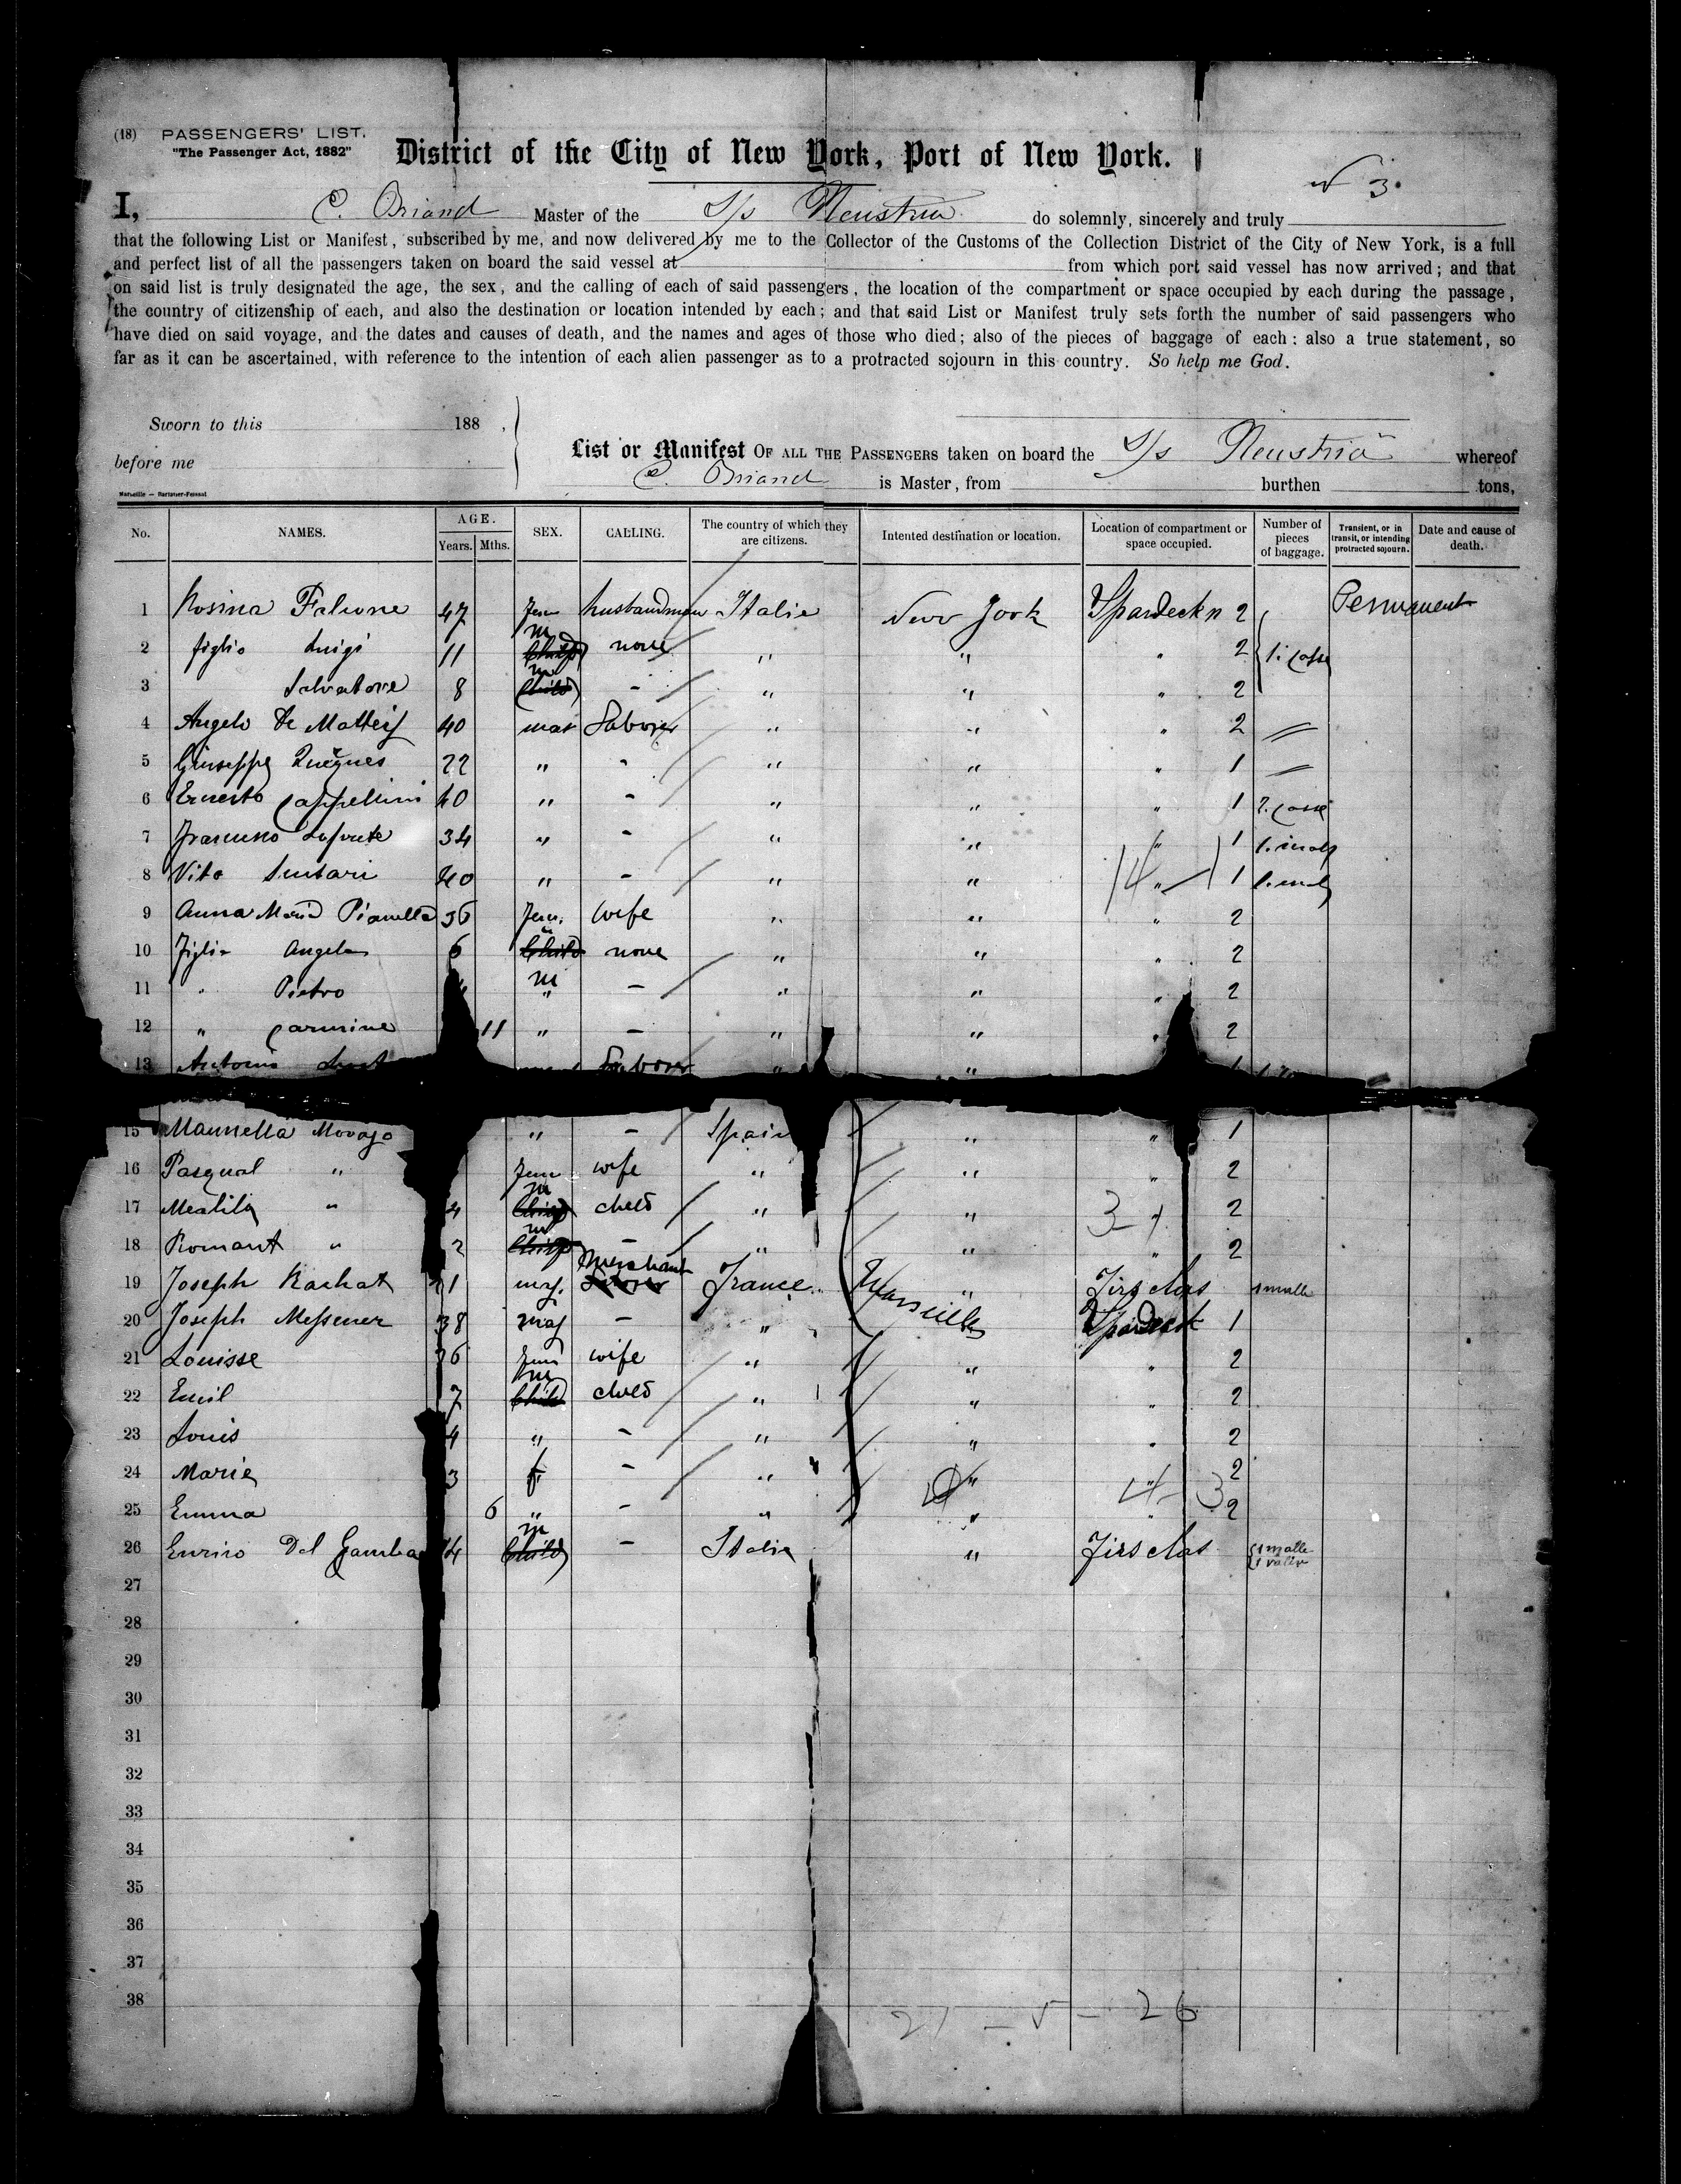 (18) PASSENGERS' LIST.
"The Passenger Act, 1882"
District of the City of New York, Port of New York.
3.
I, C. Briand Master of the S/s Neustria do solemnly, sincerely and truly
that the following List or Manifest, subscribed by me, and now delivered by me to the Collector of the Customs of the Collection District of the City of New York, is a full
and perfect list of all the passengers taken on board the said vessel at from which port said vessel has now arrived; and that
on said list is truly designated the age, the sex, and the calling of each of said passengers, the location of the compartment or space occupied by each during the passage,
the country of citizenship of each, and also the destination or location intended by each; and that said List or Manifest truly sets forth the number of said passengers who
have died on said voyage, and the dates and causes of death, and the names and ages of those who died; also of the pieces of baggage of each: also a true statement, so
far as it can be ascertained, with reference to the intention of each alien passenger as to a protracted sojourn in this country. So help me God.
Sworn to this 188 ,
before me
List or Manifest OF ALL THE PASSENGERS taken on board the S/s Neustria whereof
C. Briand is Master, from burthen tons,
No. NAMES. AGE. Years. Mths. SEX. CALLING. The country of which they are citizens. Intented destination or location. Location of compartment or space occupied. Number of pieces of baggage. Transient, or in transit, or intending protracted sojourn. Date and cause of death.
1 Rosina Falcone 47 Fem husbandman Italie New York Spardeck n 2 Permanent
2 figlio Luigi 11 m none " " " 2 1. casse
3 Salvatore 8 m - " " " 2
4 Angelo De Matteis 40 mas Labores " " " 2
5 Giuseppe 22 " " " " " 1
6 Ernesto Cappellini 40 " - " " " 1 2. casse
7 34 " - " " " 1
8 Vito 40 " - " " " 1
9 Anna Maria Pianella 36 Fem. wife " " " 2
10 figlio Angela 6 none " " " 2
11 " Pietro m " - " " " 2
12 " Carmine 11 " - " " " 2
13 Antonio Labores " "
15 Mannella Movago " - Spain " " 1
16 Pasqual " Fem wife " " " 2
17 " 4 m child " " " 2
18 Romant " 2 m - " " " 2
19 Joseph Rachat 21 mas. Merchant France " Firs clas 1 malle
Marseille
20 Joseph Messener 38 mas - " Spardeck 1
21 Louisse 36 Fem wife " " " 2
22 Emil 7 m child " " " 2
23 Louis 4 " - " " " 2
24 Marie 3 f - " " " 2
25 Emma 6 " - " " " 2
26 Enrico Del Gamba 14 m - Italia " Firs clas 1 malle
27
28
29
30
31
32
33
34
35
36
37
38
26